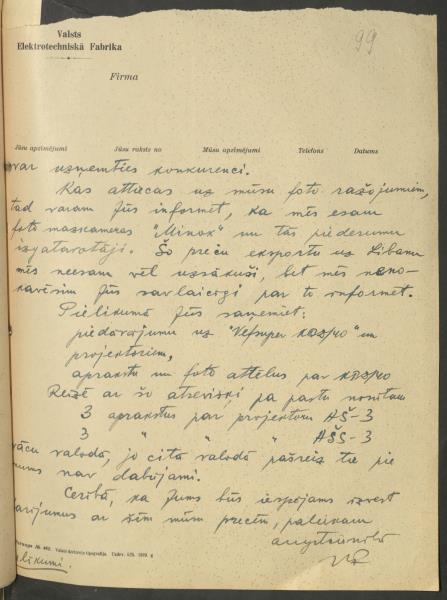 Valsts
Elektrotechniskā Fabrika
99
Firma
Jūsu apzīmējumi Jūsu raksts no Mūsu apzīmējumi Telefons Datums
var uzņemties konkurenci.
Kas attiecas uz mūsu foto ražojumiem,
tad varam Jūs informēt, ka mēs esam
foto mazkameras "Minox" un tās piederumu
izgatavotāji. Šo preču eksportu uz Libanu
mēs neesam vēl uzsākuši, bet mēs neno-
kavēsim Jūs savlaicīgi par to informēt.
Pielikumā Jūs saņemiet:
piedāvājumu uz "Vefsuper KB2/40" un
projektoriem,
aprakstu un foto attēlus par KB2/40
Reizē ar šo atsevišķi pa pastu nosūtam
3 aprakstus par projektoru AŠ-3
3 " " " AŠS-3
vācu valodā, jo citā valodā pašreiz tie pie
mums nav dabūjami.
Cerībā, ka Jums būs iespējams izvest
darījumus ar šīm mūsu precēm, paliekam
augstcienībā
Valsts tipografija